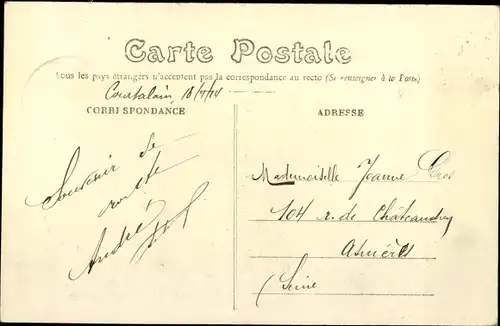 Carte Postale
Tous les pays étrangers n'acceptent pas la correspondance au recto (Se renseigner à la Poste)
Courtalain 18/7/14
CORRESPONDANCE
ADRESSE
Souvenir de
route
André
Mademoiselle Jeanne Cros
104 r. de Châteaudun
Asnières
(Seine